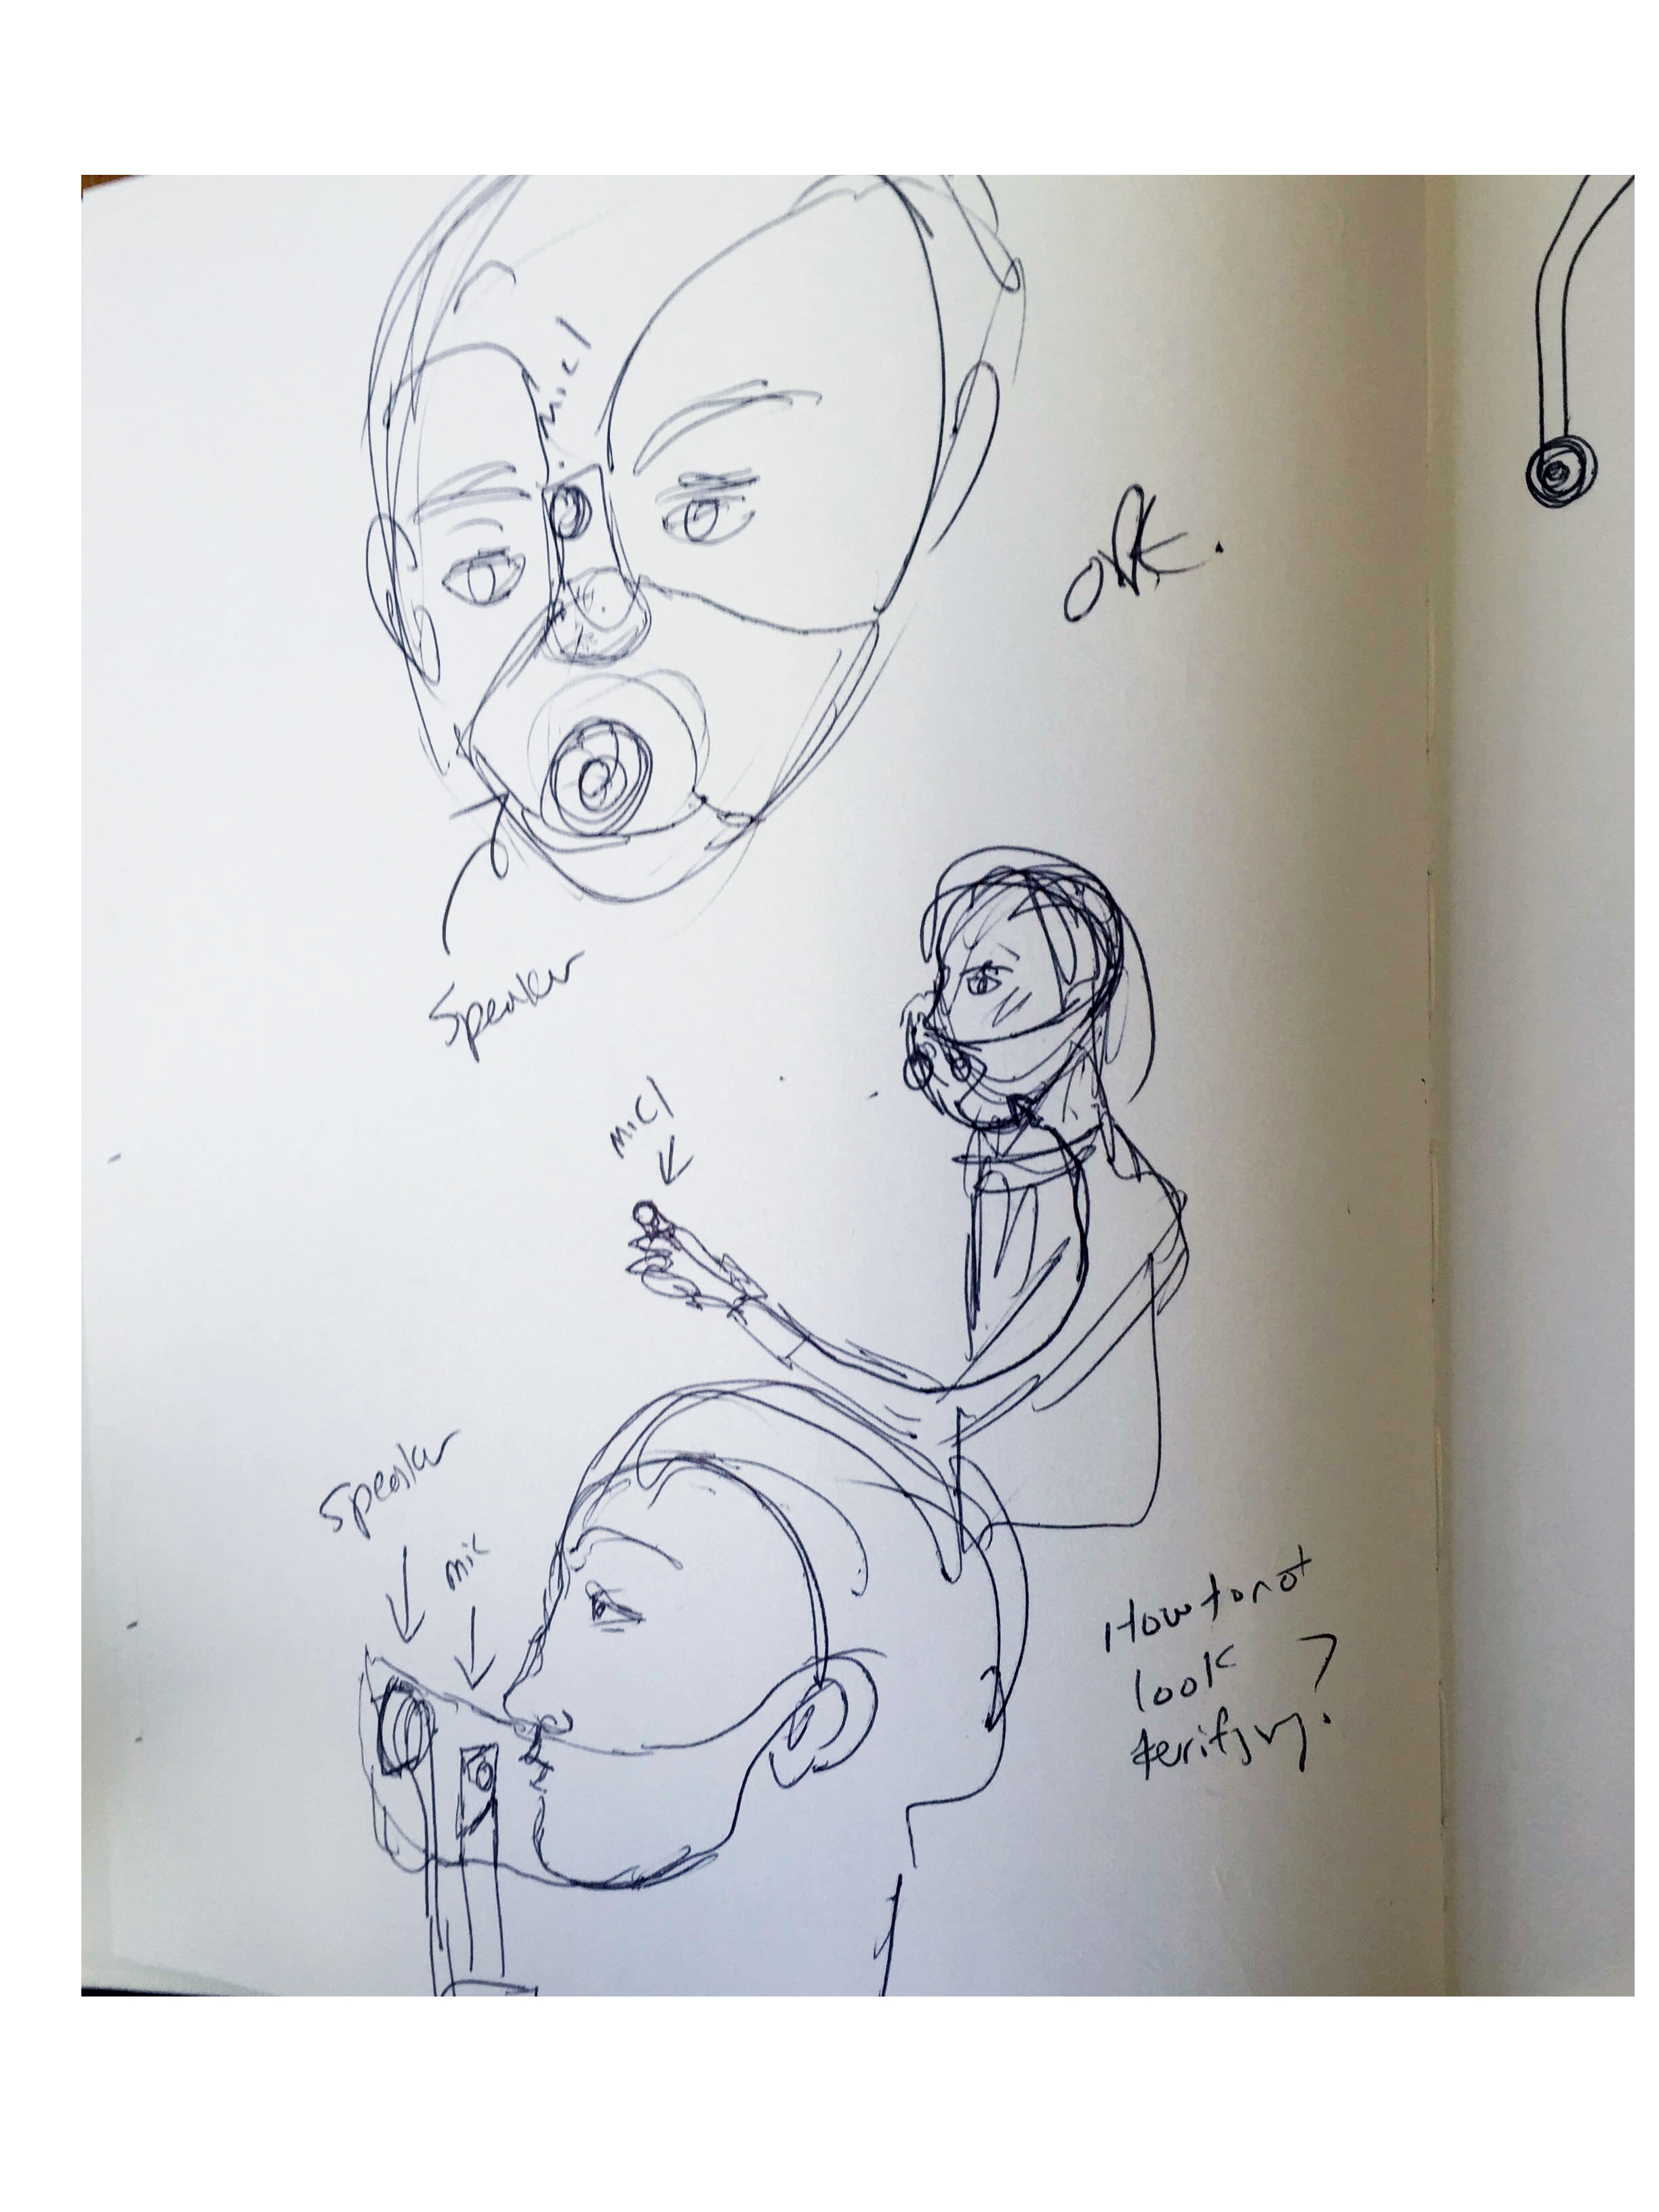 mic1
Speaker
mic1
Speaker
mic
How to not
look
terifying?